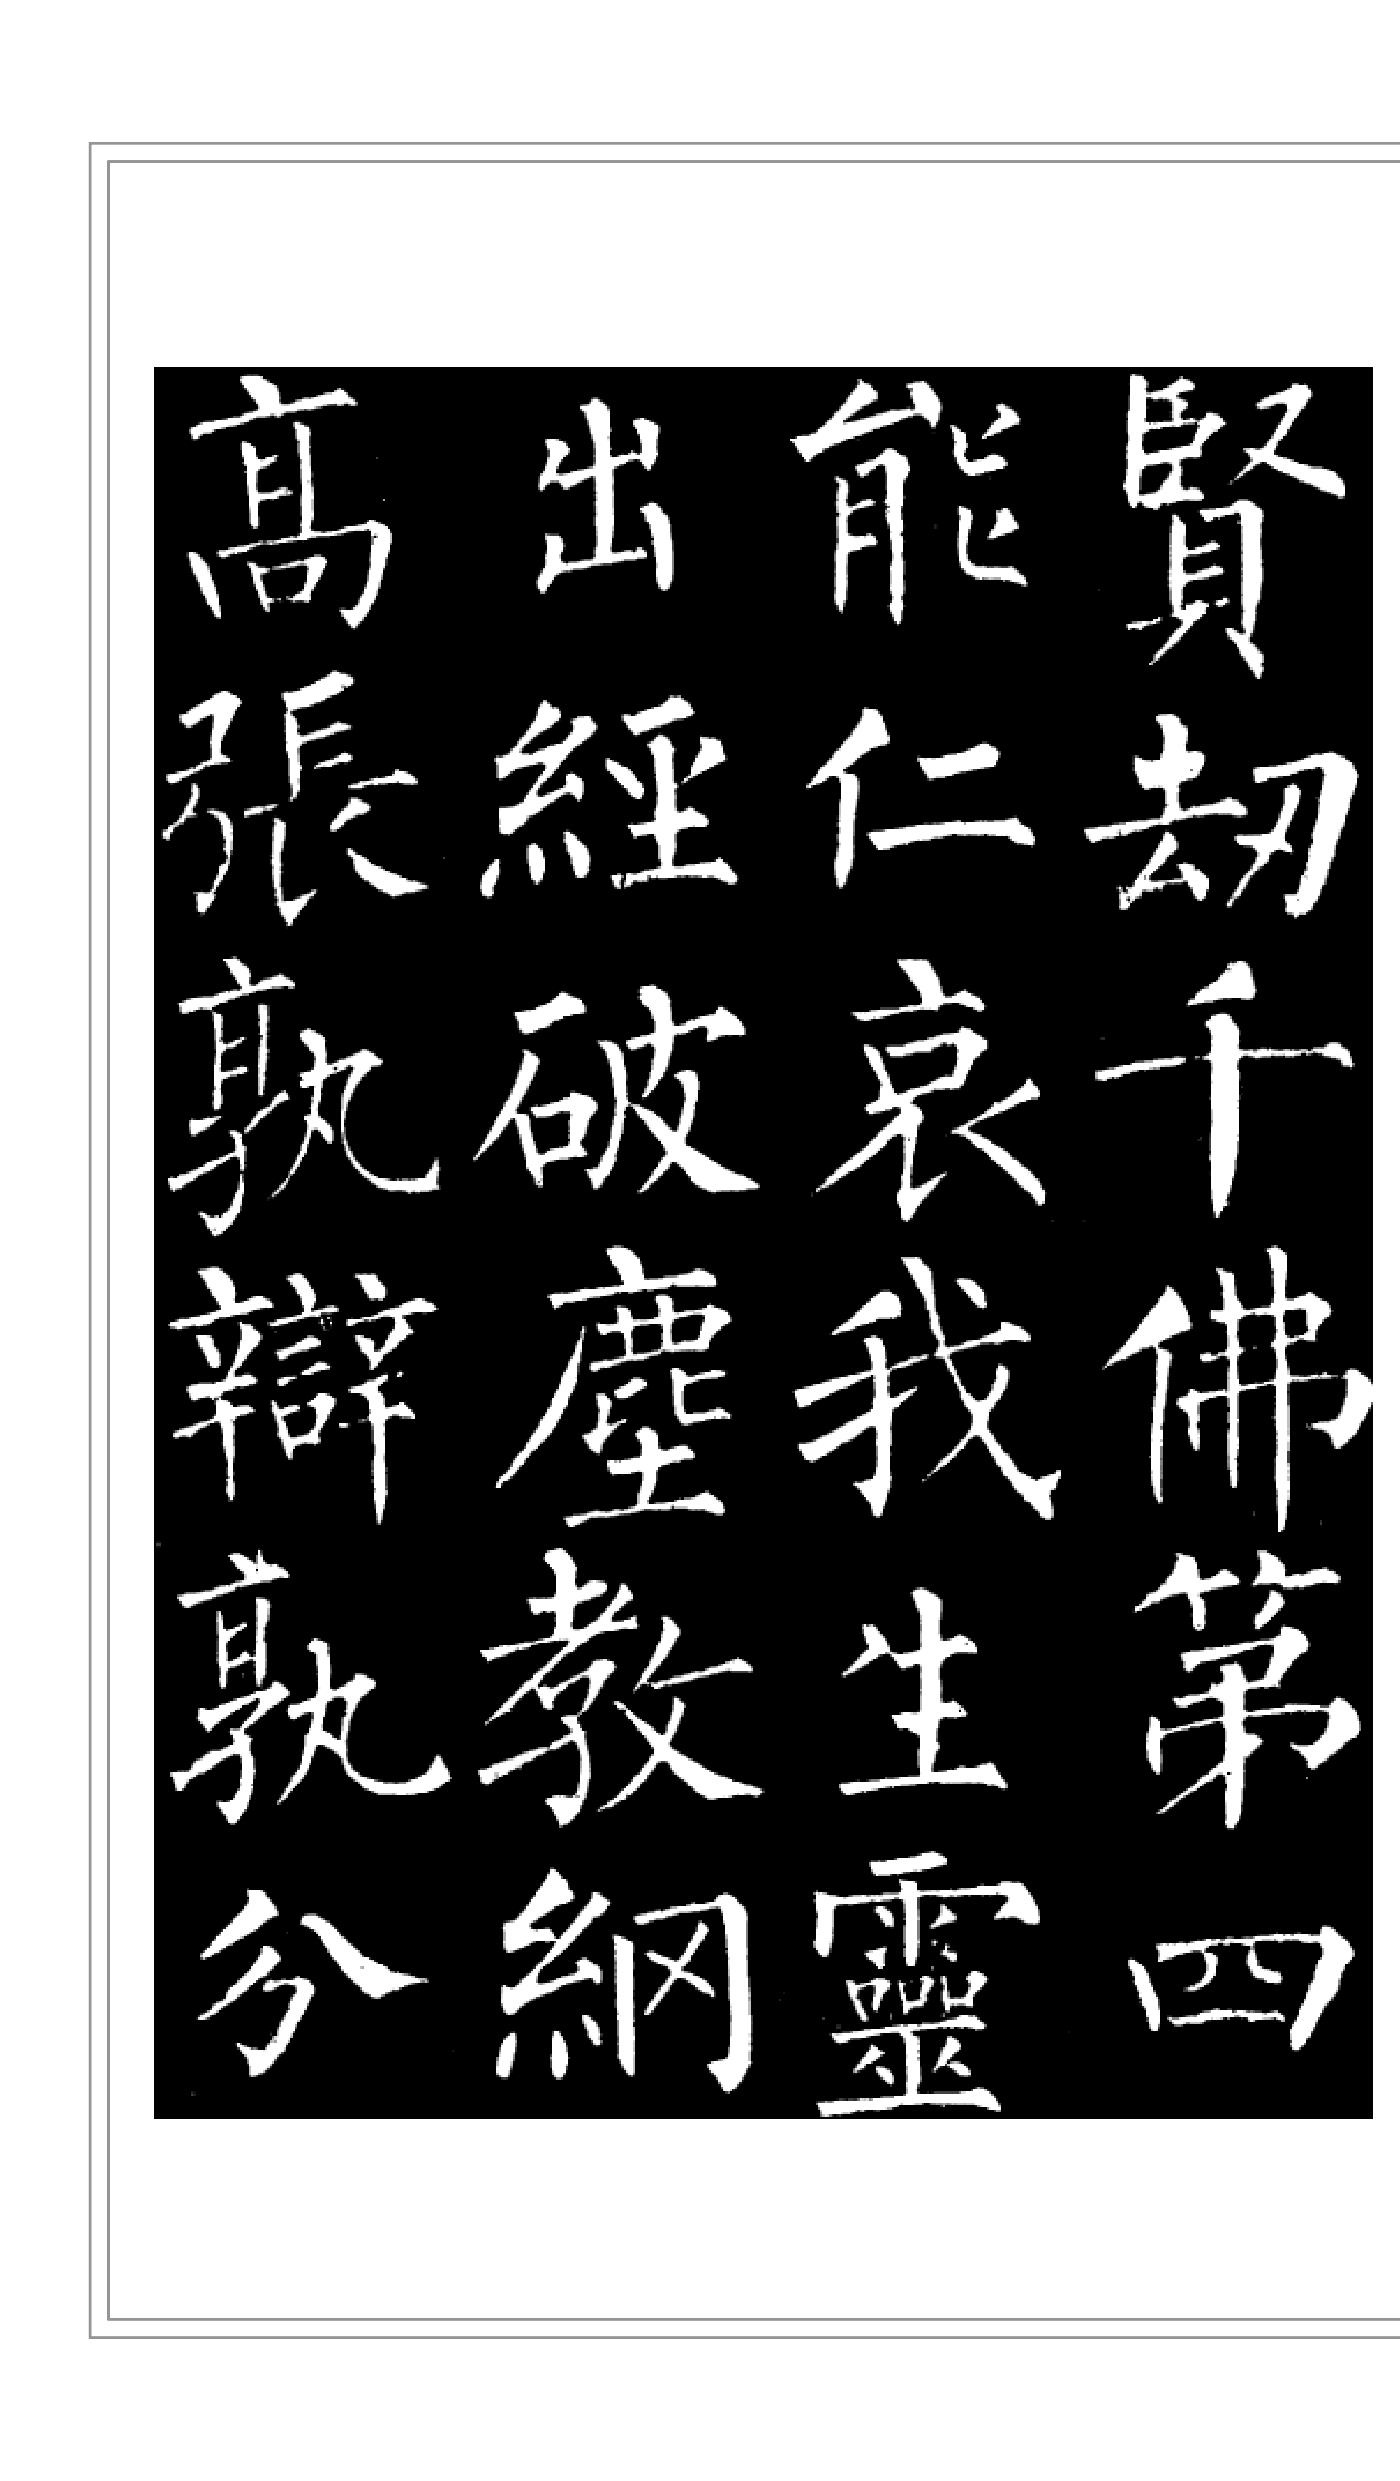 賢劫千佛第四
能仁哀我生靈
出經破塵教網
高張孰辯孰分